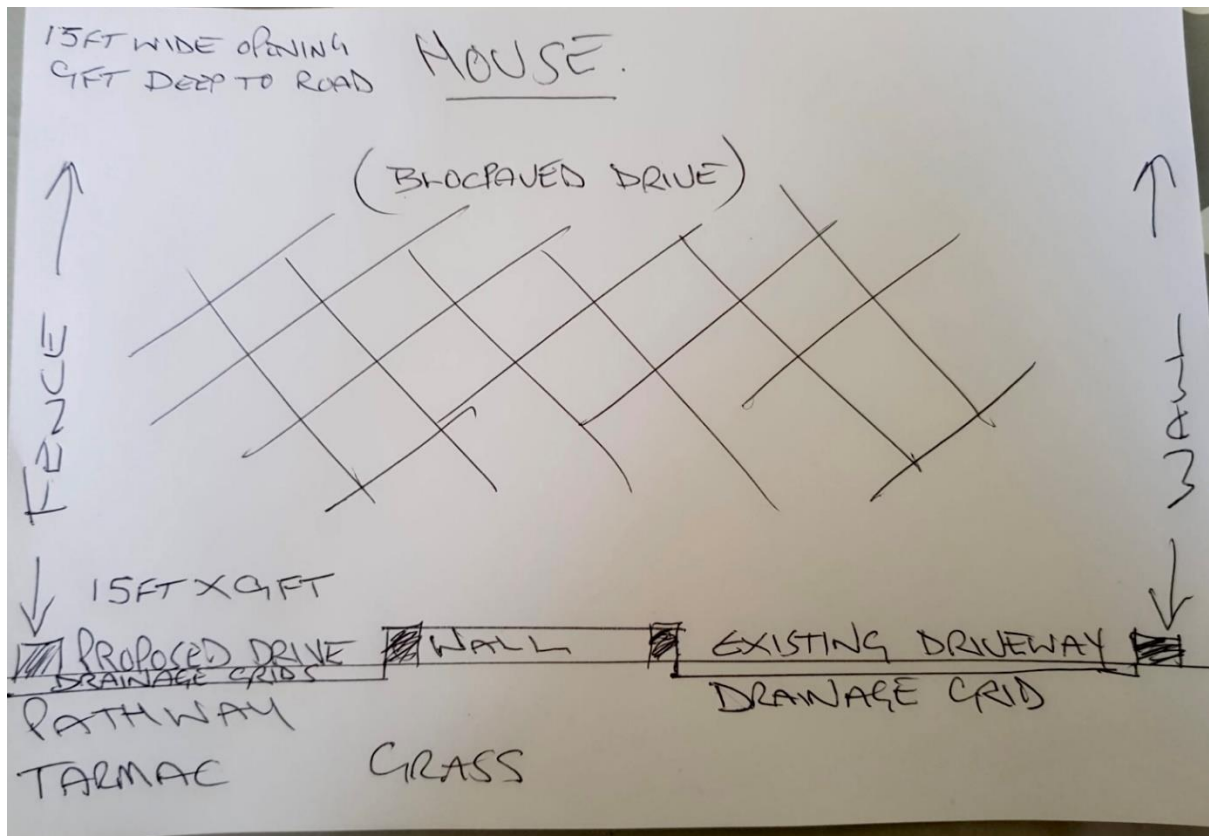 15FT WIDE OPENING
9FT DEEP TO ROAD
HOUSE.
(BLOCPAVED DRIVE)
FENCE
WALL
15FT X 9FT
PROPOSED DRIVE
WALL
EXISTING DRIVEWAY
DRAINAGE GRIDS
DRAINAGE GRID
PATHWAY
TARMAC
GRASS